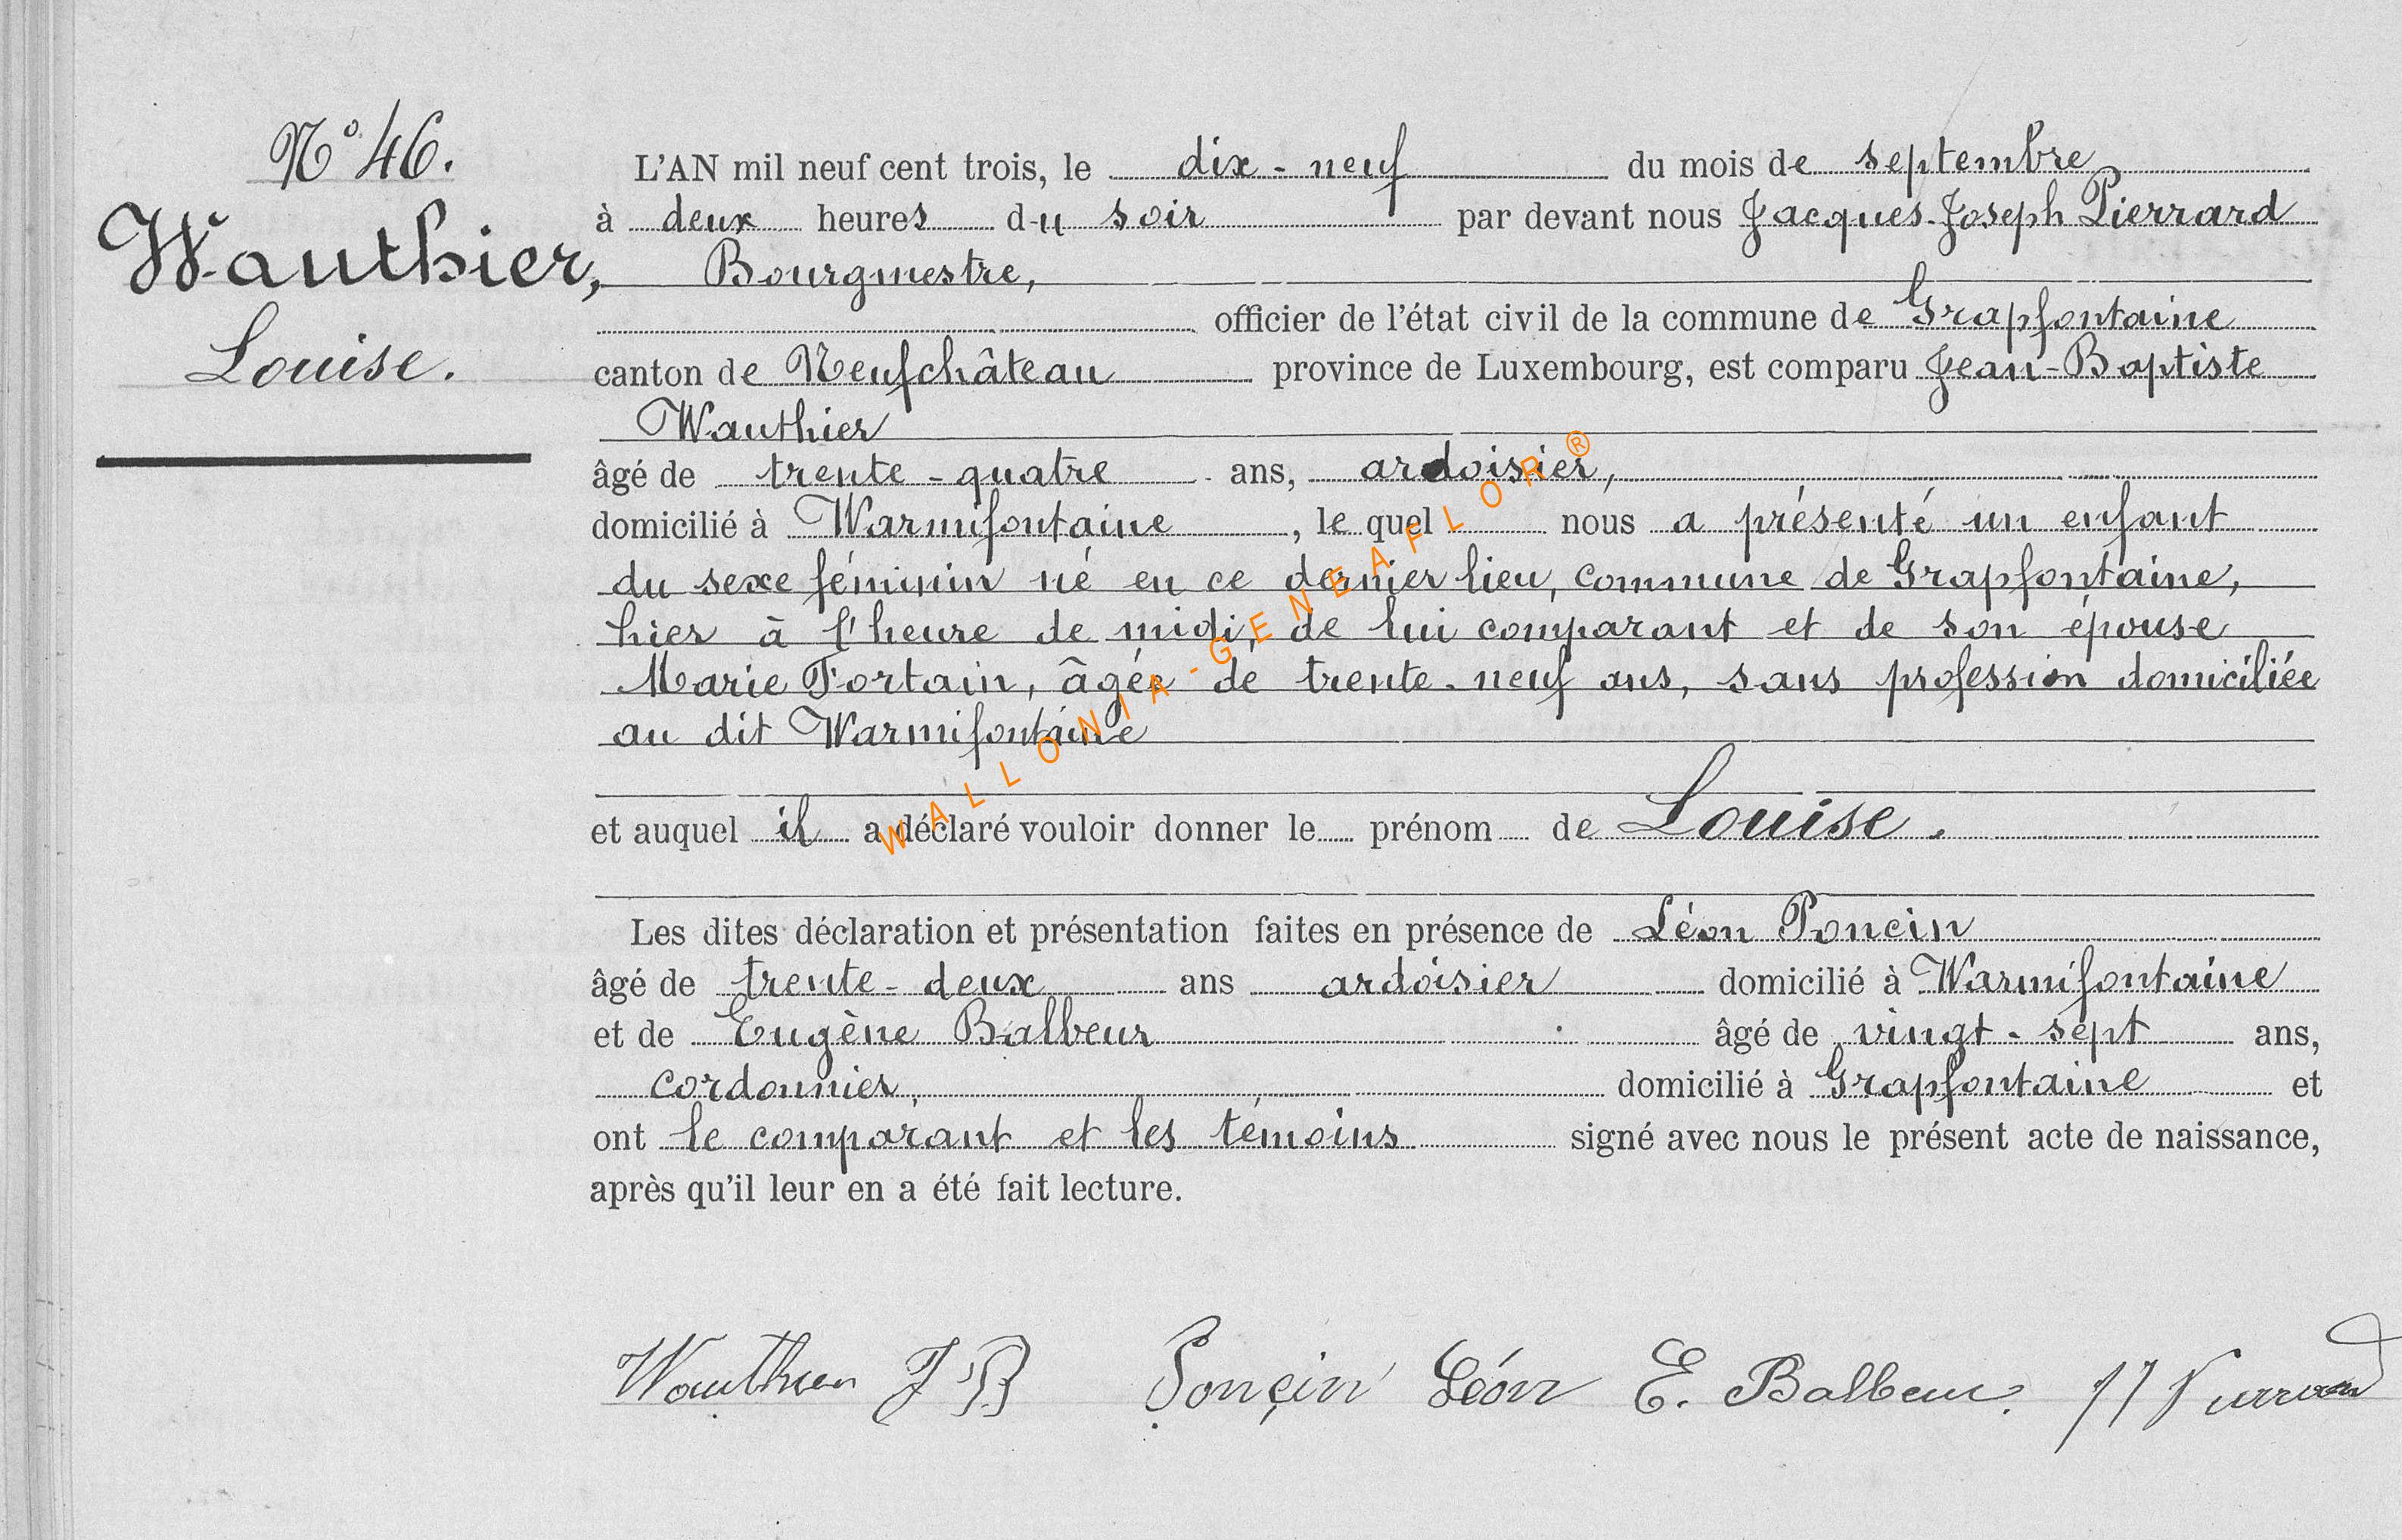 N° 46.
Wauthier,
Louise.
L'AN mil neuf cent trois, le dix-neuf du mois de septembre
à deux heures du soir par devant nous Jacques-Joseph Pierrard
Bourgmestre,
officier de l'état civil de la commune de Grapfontaine
canton de Neufchâteau province de Luxembourg, est comparu Jean-Baptiste
Wauthier
âgé de trente-quatre ans, ardoisier,
domicilié à Warmifontaine, le quel nous a présenté un enfant
du sexe féminin né en ce dernier lieu, commune de Grapfontaine,
hier à l'heure de midi, de lui comparant et de son épouse
Marie Fortain, âgée de trente-neuf ans, sans profession domiciliée
au dit Warmifontaine
et auquel il a déclaré vouloir donner le prénom de Louise.
Les dites déclaration et présentation faites en présence de Léon Poncin
âgé de trente-deux ans ardoisier domicilié à Warmifontaine
et de Eugène Balbeur âgé de vingt-sept ans,
cordonnier, domicilié à Grapfontaine et
ont le comparant et les témoins signé avec nous le présent acte de naissance,
après qu'il leur en a été fait lecture.
Wauthier J B Ponçin Léon E. Balbeur. JJ Pierrard
WALLONIA-GENEAFLOR®